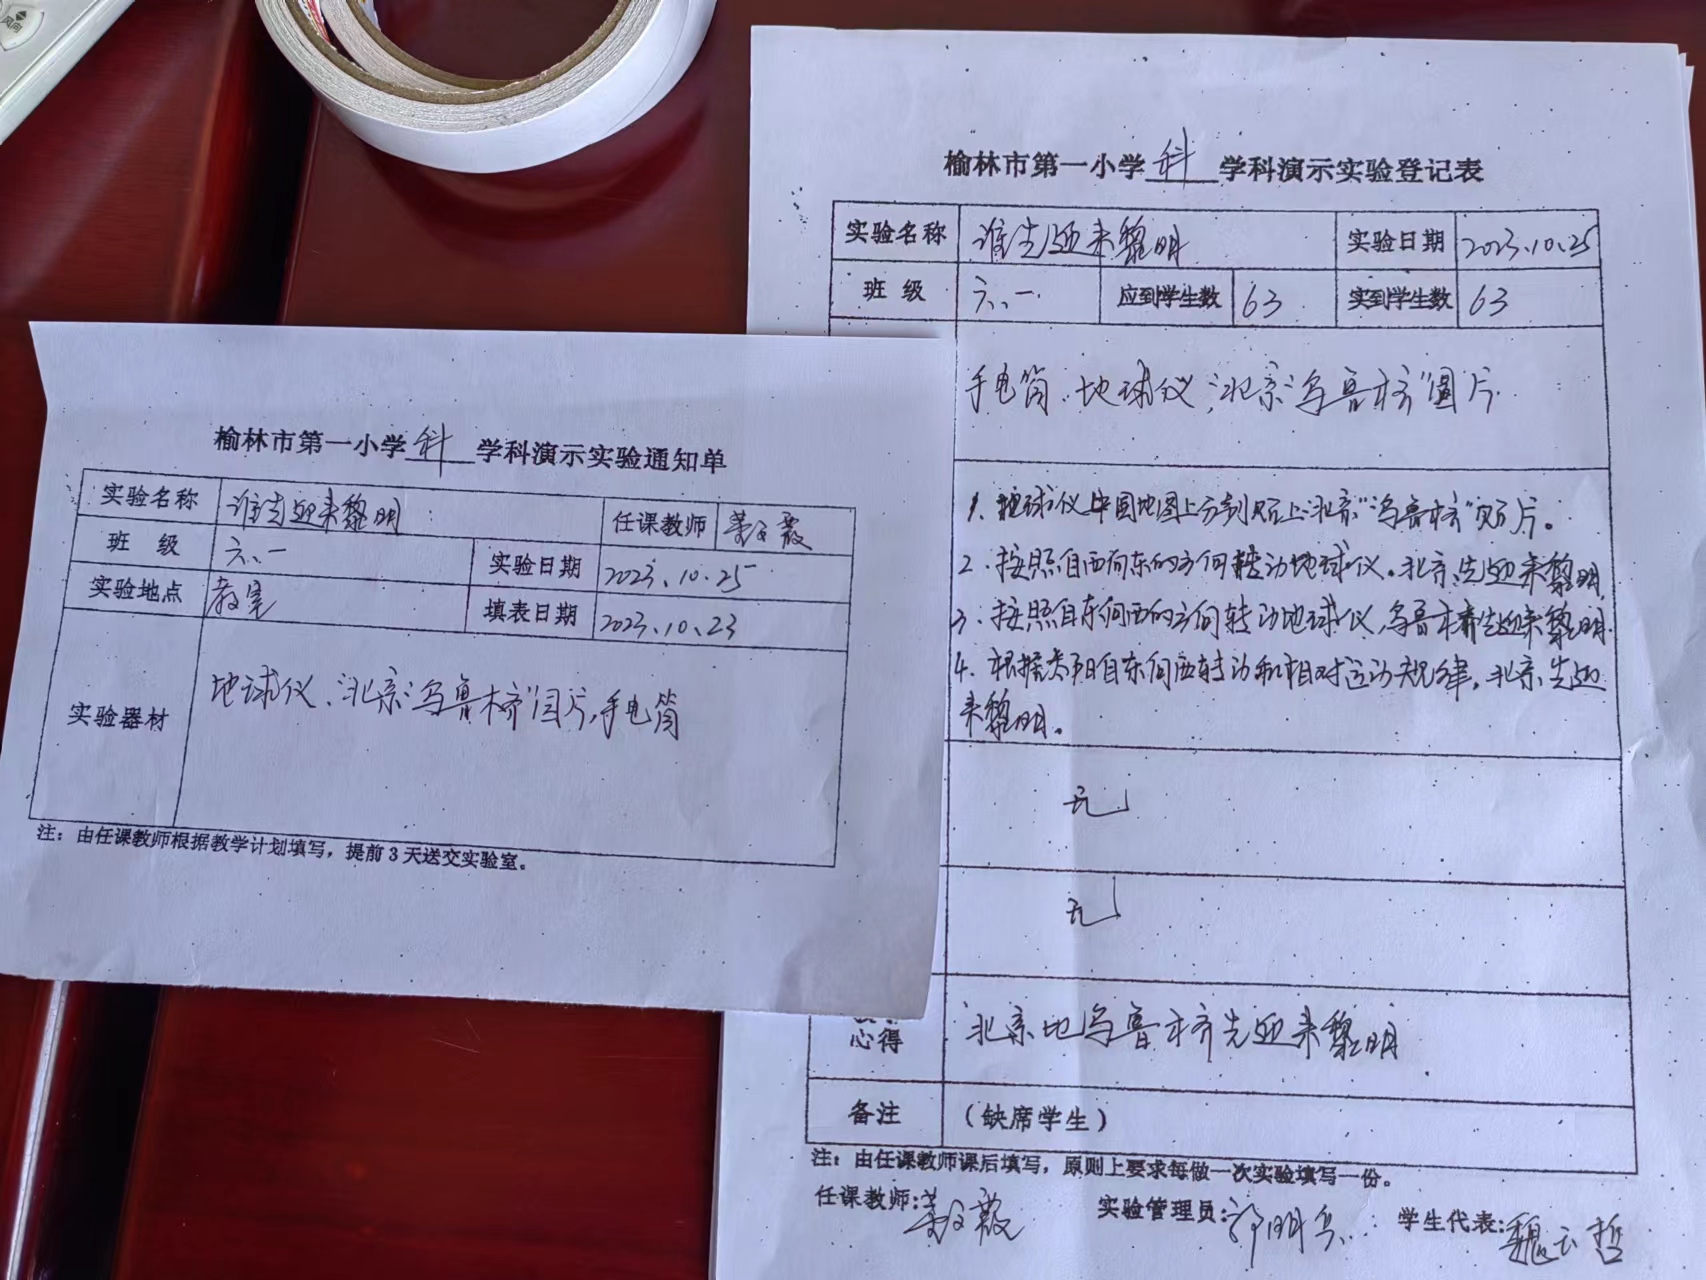 风向
榆林市第一小学 科 学科演示实验通知单
实验名称 谁先迎来黎明 任课教师
班 级 六、一 实验日期 2023.10.25
实验地点 教室 填表日期 2023.10.23
实验器材 地球仪、“北京”“乌鲁木齐”图片,手电筒
注：由任课教师根据教学计划填写，提前3天送交实验室。
榆林市第一小学 科 学科演示实验登记表
实验名称 谁先迎来黎明 实验日期 2023.10.25
班 级 六、一 应到学生数 63 实到学生数 63
手电筒、地球仪、“北京”“乌鲁木齐”图片
1. 地球仪中国地图上分别贴上“北京”“乌鲁木齐”图片。
2. 按照自西向东的方向转动地球仪。北京先迎来黎明
3. 按照自东向西的方向转动地球仪,乌鲁木齐先迎来黎明.
4. 根据太阳自东向西转动和相对运动规律,北京先迎
来黎明。
无
无
心得 北京比乌鲁木齐先迎来黎明
备注 （缺席学生）
注：由任课教师课后填写，原则上要求每做一次实验填写一份。
任课教师: 实验管理员: 学生代表:魏云哲